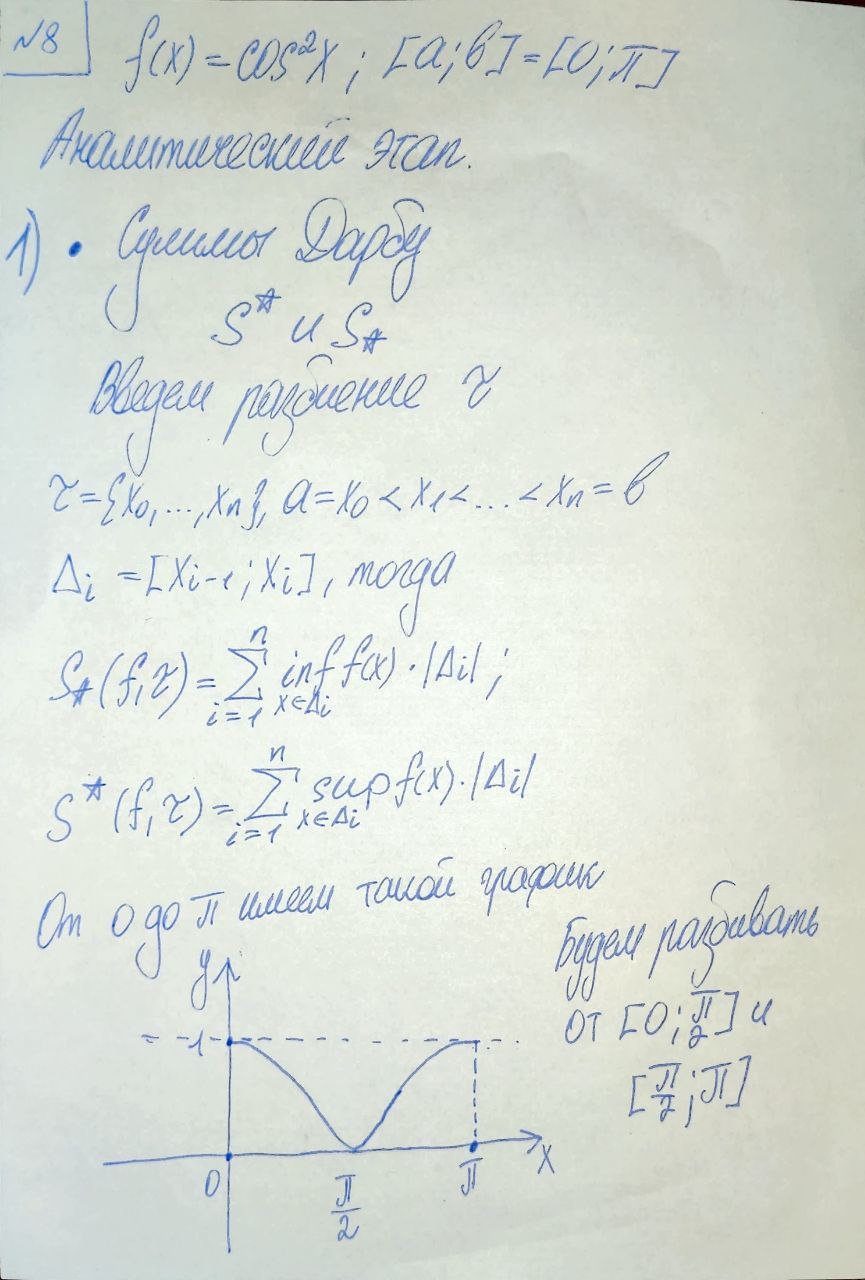 №8
f(x) = cos²x ; [a; b] = [0; π]
Аналитический этап.
1) • Суммы Дарбу
S* и S⁎
Введем разбиение τ
τ = {x₀, ..., xₙ}, a = x₀ < x₁ < ... < xₙ = b
Δᵢ = [xᵢ₋₁; xᵢ], тогда
S⁎(f, τ) = ∑ᵢ₌₁ⁿ inf_{x∈Δᵢ} f(x) · |Δᵢ| ;
S*(f, τ) = ∑ᵢ₌₁ⁿ sup_{x∈Δᵢ} f(x) · |Δᵢ|
От 0 до π имеем такой график
Будем разбивать
от [0; π/2] и
[π/2; π]
y
1
0
π/2
π
x